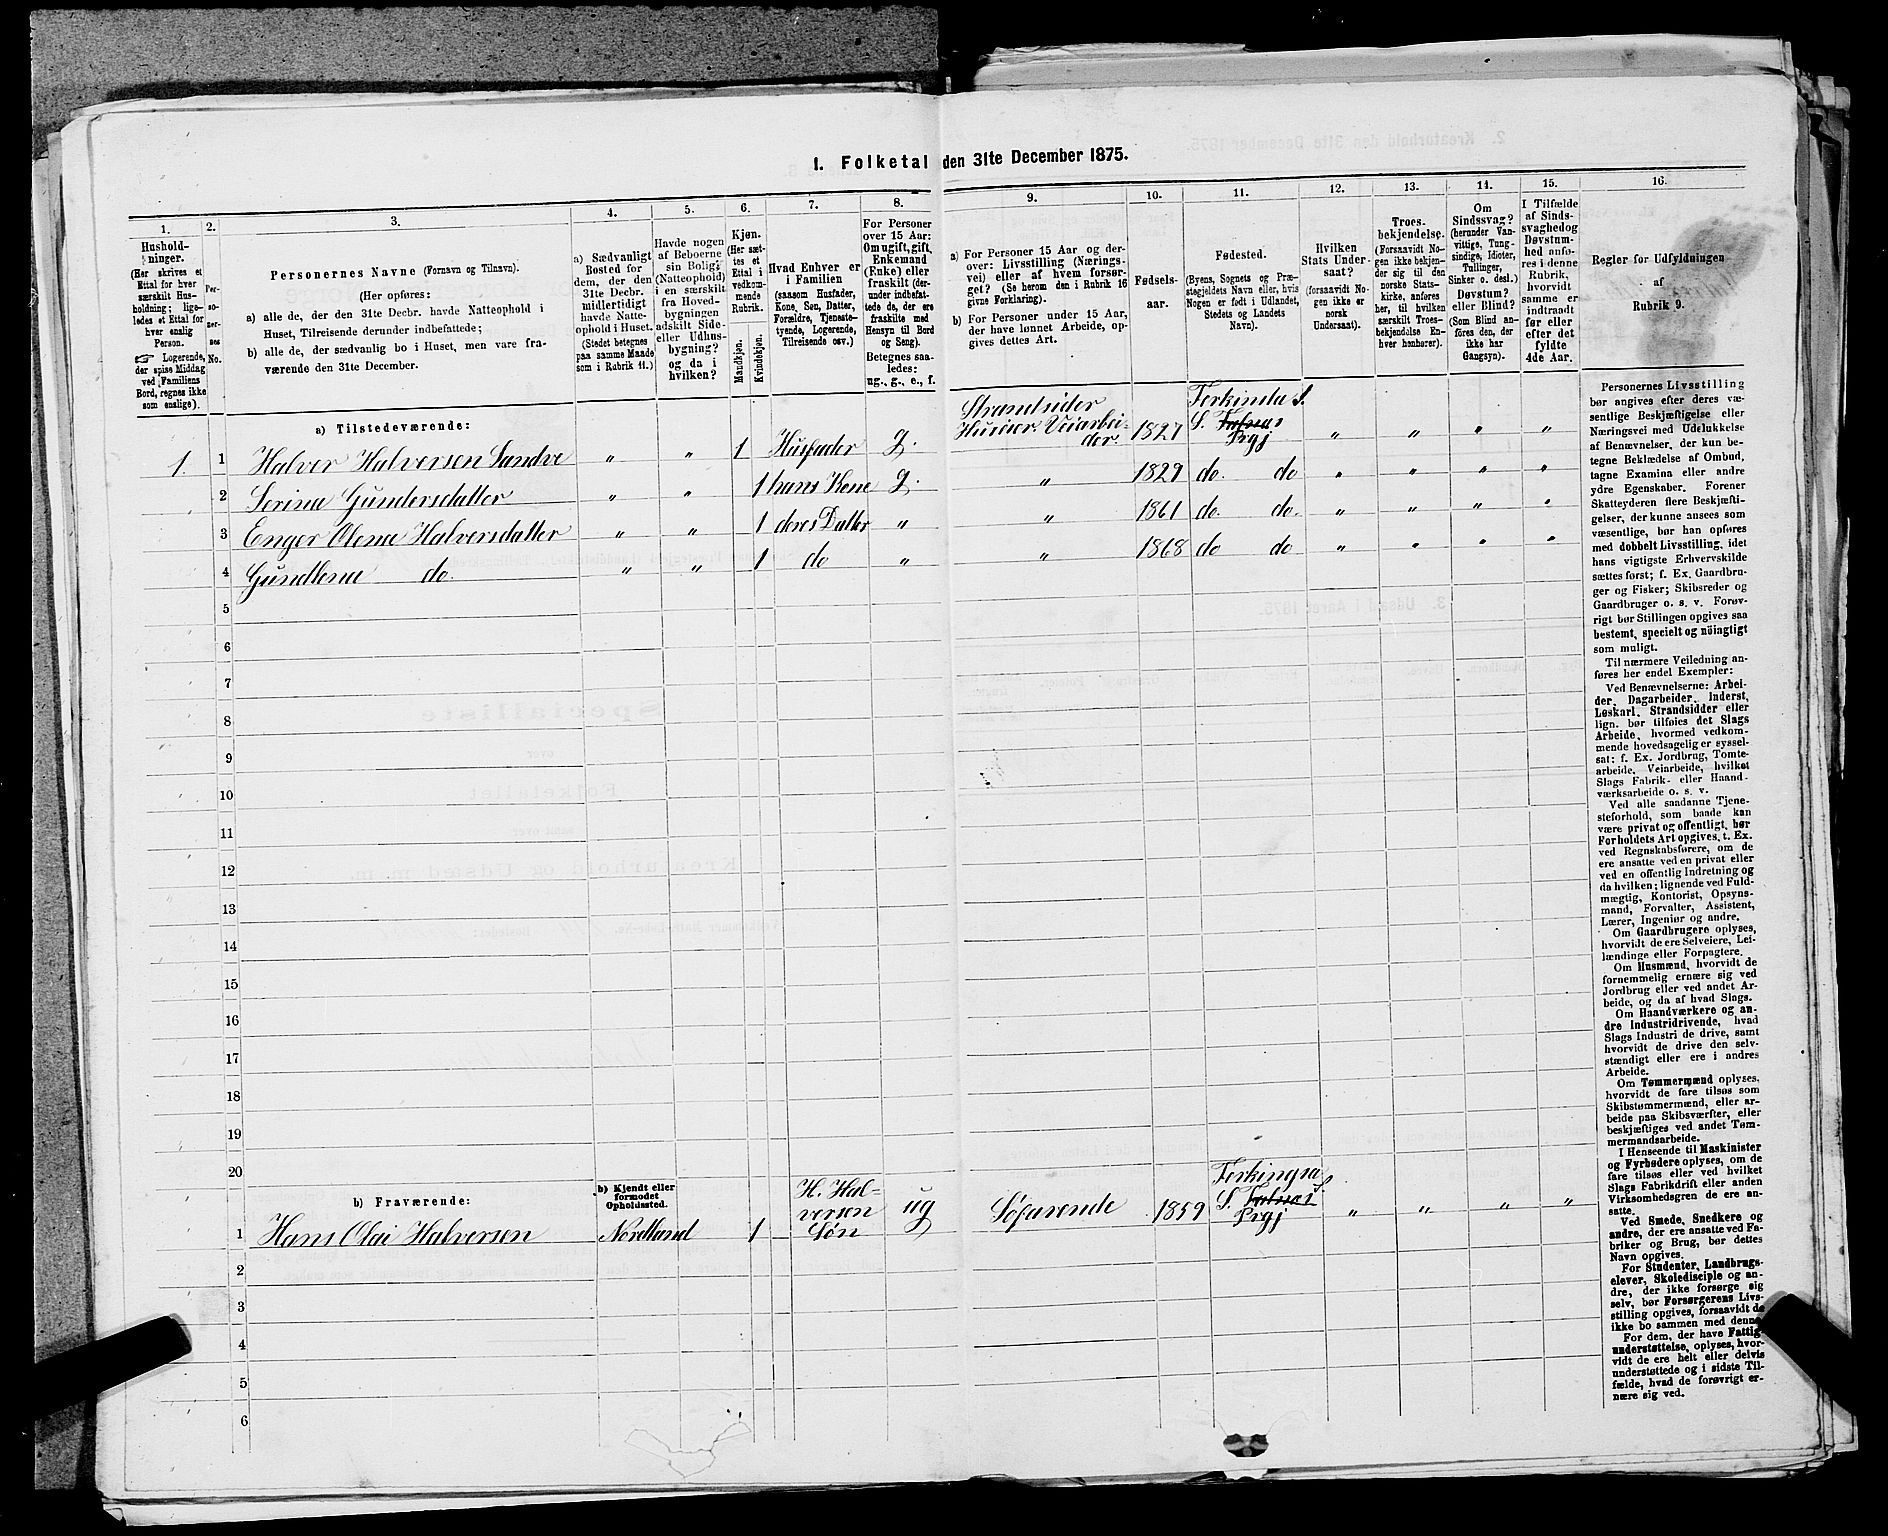 1. Folketal den 31te December 1875.
1.
Hushold-
ninger.
(Her skrives et
Ettal for hver
særskilt Hus-
holdning; lige-
ledes et Ettal for
hver enslig
Person.
☞ Logerende,
der spise Middag
ved Familiens
Bord, regnes ikke
som enslige).
2.
Per-
so-
ner-
nes
No.
3.
Personernes Navne (Fornavn og Tilnavn).
(Her opføres:
a) alle de, der den 31te Decbr. havde Natteophold i
Huset, Tilreisende derunder indbefattede;
b) alle de, der sædvanlig bo i Huset, men vare fra-
værende den 31te December.
4.
a) Sædvanligt
Bosted for
dem, der den
31te Decbr.
midlertidigt
havde Natte-
ophold i Huset.
(Stedet betegnes
paa samme Maade
som i Rubrik 11.)
5.
Havde nogen
af Beboerne
sin Bolig
(Natteophold)
i en særskilt
fra Hoved-
bygningen
adskilt Side-
eller Udhus-
bygning?
og da i
hvilken?
6.
Kjøn.
(Her sæt-
tes et
Ettal i
vedkom-
mende
Rubrik.
Mandkjøn.
Kvindekjøn.
7.
Hvad Enhver er
i Familien
(saasom Husfader,
Kone, Søn, Datter,
Forældre, Tjeneste-
tyende, Logerende,
Tilreisende osv.)
8.
For Personer
over 15 Aar:
Om ugift, gift,
Enkemand
(Enke) eller
fraskilt (der-
under indbefat-
tede de, der ere
fraskilte med
Hensyn til Bord
og Seng).
Betegnes saa-
ledes:
ug., g., e., f.
9.
a) For Personer 15 Aar og der-
over: Livsstilling (Nærings-
vei) eller af hvem forsør-
get? (Se herom den i Rubrik 16
givne Forklaring).
b) For Personer under 15 Aar,
der have lønnet Arbeide, op-
gives dettes Art.
10.
Fødsels-
aar.
11.
Fødested.
(Byens, Sognets og Præ-
stegjeldets Navn eller, hvis
Nogen er født i Udlandet,
Stedets og Landets
Navn).
12.
Hvilken
Stats Under-
saat?
(forsaavidt No-
gen ikke er
norsk
Undersaat).
13.
Troes-
bekjendelse.
(Forsaavidt No-
gen ikke bekjen-
der sig til den
norske Stats-
kirke, anføres
her, til hvilken
særskilt Troes-
bekjendelse En-
hver henhører).
14.
Om
Sindssvag?
(herunder Van-
vittige, Tung-
sindige, Idioter,
Tullinger,
Sinker o. desl.)
Døvstum?
eller Blind?
(Som Blind an-
føres den, der
ikke har
Gangsyn).
15.
I Tilfælde
af Sinds-
svaghed og
Døvstum-
hed anfø-
res i denne
Rubrik,
hvorvidt
samme er
indtraadt
før eller
efter det
fyldte
4de Aar.
16.
Regler for Udfyldningen
af
Rubrik 9.
a) Tilstedeværende:
1. 1 Halver Halversen Sandve " " 1 Husfader g. Strandsider Huseier. Veiarbeider. 1827 S. Prgj " " " "
2 Serina Gundersdatter " " 1 hans Kone g. " 1829 do. do " " " "
3 Enger Olena Halversdatter " " 1 deres Datter " " 1861 do. do. " " " "
4 Gundlena do. " " 1 do " " 1868 do do " " " "
5
6
7
8
9
10
11
12
13
14
15
16
17
18
19
20
b) Fraværende:
b) Kjendt eller
formodet
Opholdssted.
1 Hans Olai Halversen Nordland 1 H. Halversen Søn ug Søfarende 1859 S. Prgj " " " "
2
3
4
5
6
Personernes Livsstilling
bør angives efter deres væ-
sentlige Beskjæftigelse eller
Næringsvei med Udelukkelse
af Benævnelser, der kun be-
tegne Beklædelse af Ombud,
tagne Examina eller andre
ydre Egenskaber. Forener
Skatteyderen flere Beskjæfti-
gelser, der kunne ansees som
væsentlige, bør han opføres
med dobbelt Livsstilling, idet
hans vigtigste Erhvervskilde
sættes først; f. Ex. Gaardbru-
ger og Fisker; Skibsreder og
Gaardbruger o. s. v. Forøv-
rigt bør Stillingen opgives saa
bestemt, specielt og nöiagtigt
som muligt.
Til nærmere Veiledning an-
føres her endel Exempler:
Ved Benævnelserne: Arbei-
der, Dagarbeider, Inderst,
Løskarl, Strandsidder eller
lign. bør tilføies det Slags
Arbeide, hvormed vedkom-
mende hovedsagelig er syssel-
sat: f. Ex. Jordbrug, Tomte-
arbeide, Veiarbeide, hvilket
Slags Fabrik- eller Haand-
værksarbeide o. s. v.
Ved alle saadanne Tjene-
steforhold, som baade kan
være privat og offentligt, bør
Forholdets Art opgives, t. Ex.
ved Regnskabsførere, om de
ere ansatte ved en privat eller
ved en offentlig Indretning og
da hvilken; lignende ved Fuld-
mægtig, Kontorist, Opsyns-
mand, Forvalter, Assistent,
Lærer, Ingeniør og andre.
Om Gaardbrugere oplyses,
hvorvidt de ere Selveiere, Lei-
lændinge eller Forpagtere.
Om Husmænd, hvorvidt de
fornemmelig ernære sig ved
Jordbrug eller ved andet Ar-
beide, og da af hvad Slags.
Om Haandværkere og an-
dre Industridrivende, hvad
Slags Industri de drive, samt
hvorvidt de drive den selv-
stændigt eller ere i andres
Arbeide.
Om Tømmermænd oplyses,
hvorvidt de fare tilsøs som
Skibstømmermænd, eller ar-
beide paa Skibsværfter, eller
beskjæftiges ved andet Tøm-
mermandsarbeide.
I Henseende til Maskinister
og Fyrbødere oplyses, om de
fare tilsøs eller ved hvilket
Slags Fabrikdrift eller anden
Virksomhedsgren de ere an-
satte.
Ved Smede, Snedkere og
andre, der ere ansatte ved Fa-
briker og Brug, bør dettes
Navn opgives.
For Studenter, Landbrugs-
elever, Skoledisciple og an-
dre, der ikke forsørge sig
selv, bør Forsørgerens Livs-
stilling opgives, forsaavidt de
ikke bo sammen med denne.
For dem, der have Fattig-
understøttelse, oplyses, hvor-
vidt de ere helt eller delvis
understøttede og i sidste Til-
fælde, hvad de forøvrigt er-
nære sig ved.